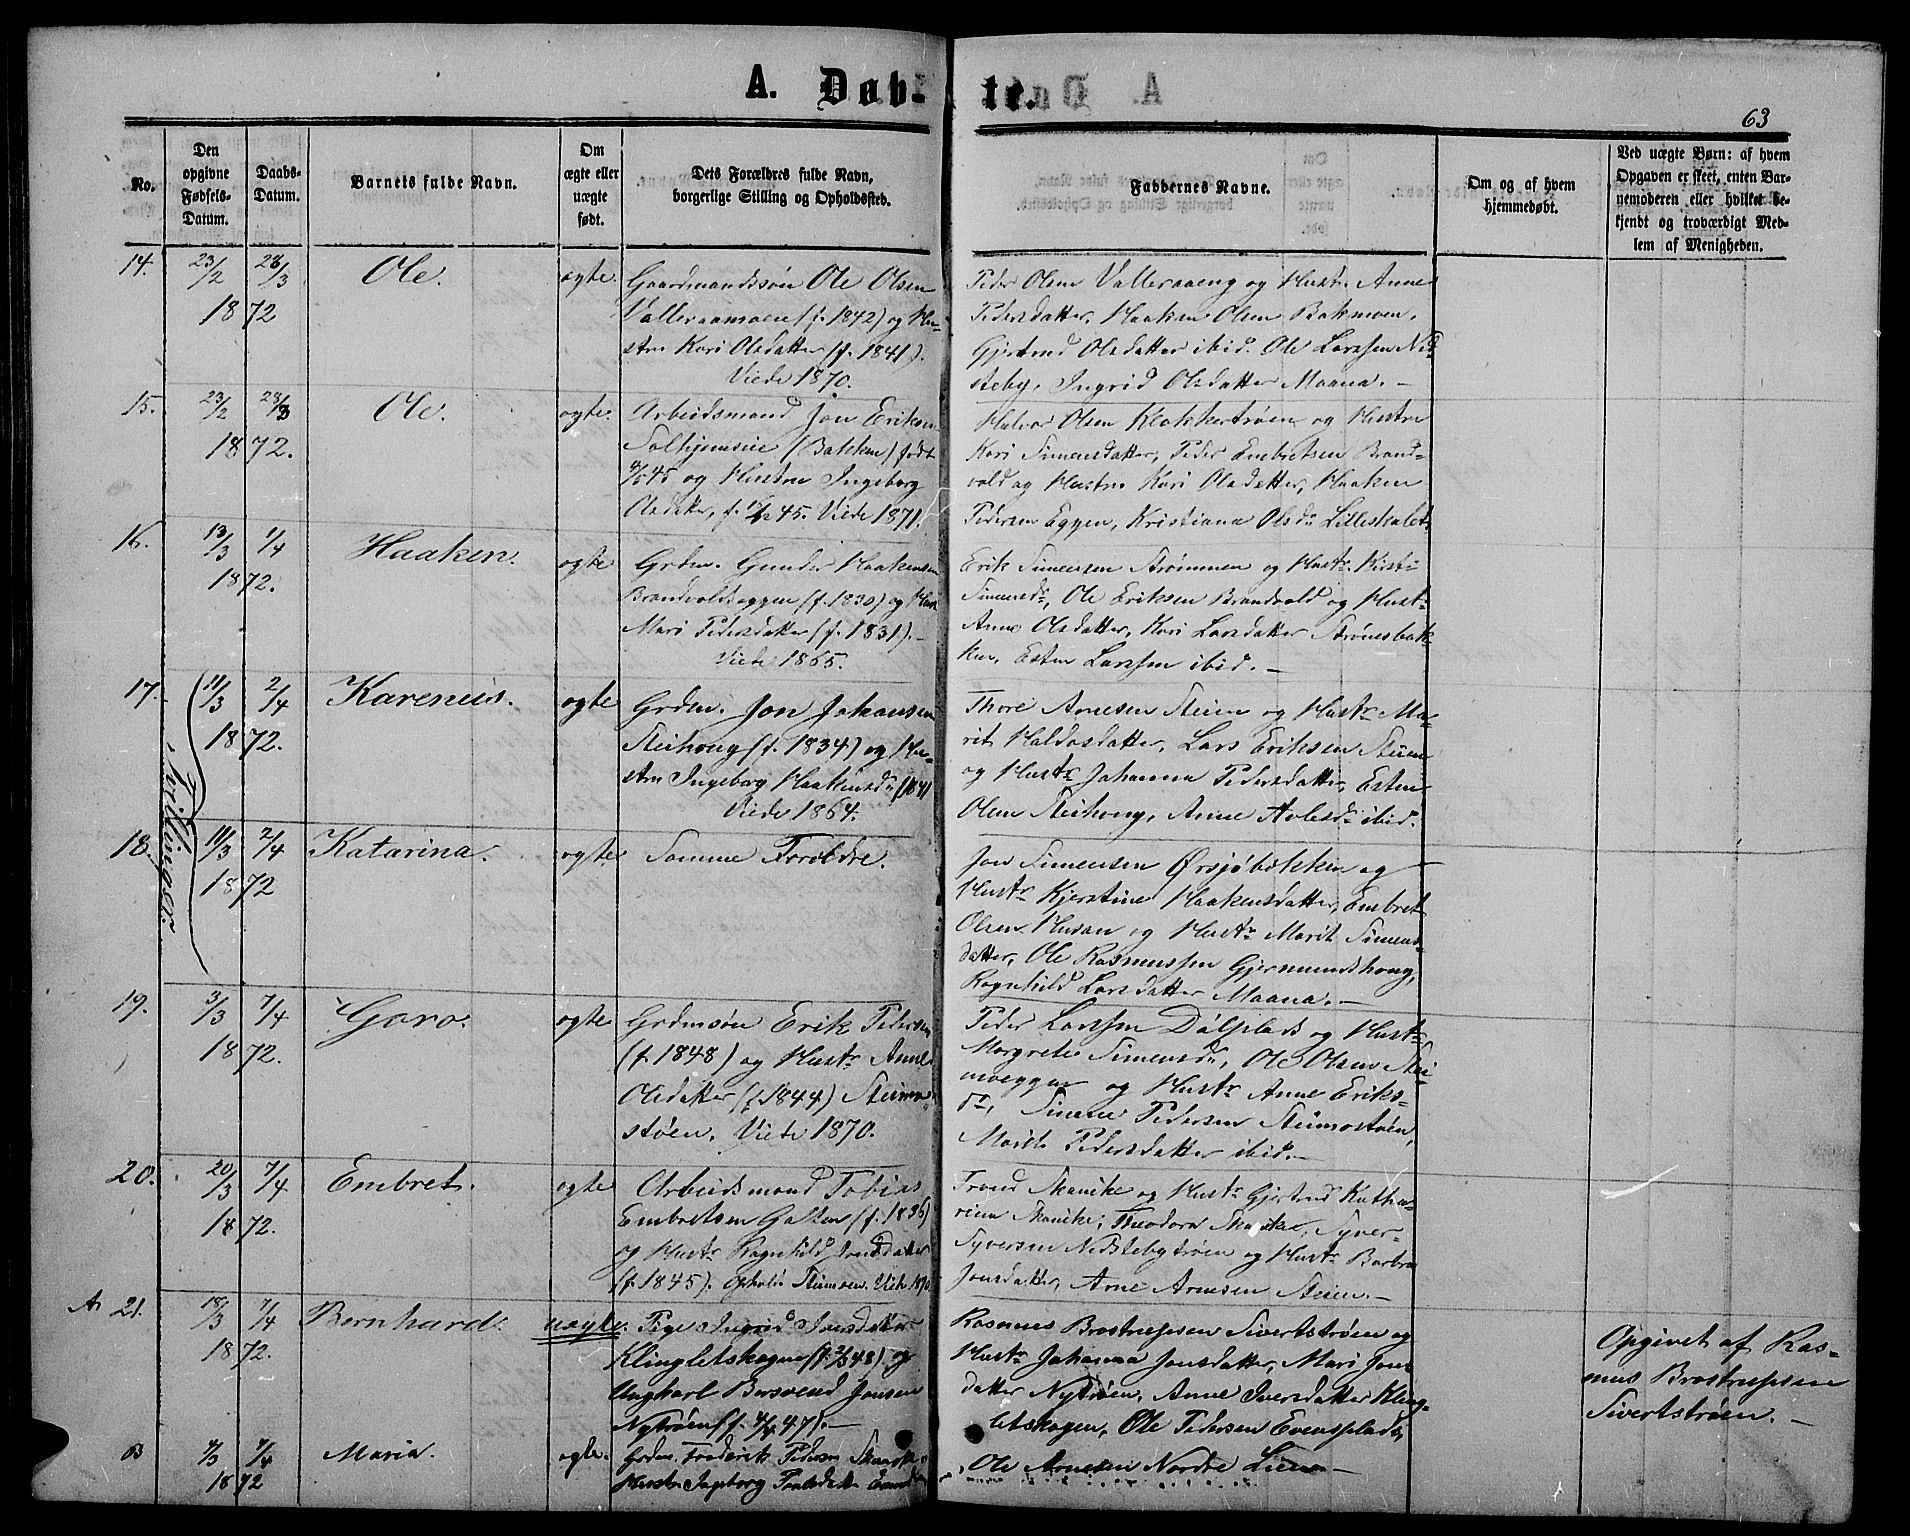 A. Døb-
te.
63
No.
Den
opgivne
Fødsels-
Datum.
Daabs-
Datum.
Barnets fulde Navn.
Om
ægte eller
uægte
født.
Dets Forældres fulde Navn,
borgerlige Stilling og Opholdssted.
Faddernes Navne.
Om og af hvem
hjemmedøbt.
Ved uægte Børn: af hvem
Opgaven er skeet, enten Bar-
nemoderen eller hvilket be-
kjendt og troværdigt Med-
lem af Menigheden.
14.
23/2
28/3
1872
Ole.
ægte.
Gaardmandssøn Ole Olsen
(f. 1842) og Hu-
stru Kari Olsdatter (f. 1841).
Viede 1870.
Peder Olsen Valleraaeng og Hustr. Anne
Pedersdatter, Haaken Olsen Bakmoen,
Gjertrud Olsdatter ibid. Ole Larssen Ned-
steby, Ingrid Olsdatter Maana. —
15.
23/2
28/3
1872.
Ole.
ægte.
Arbeidsmand Jon Eriksen
(Bakken) født
og Hustru Ingeborg
Olsdatter, f. 45. Viede 1871.
Halvor Olsen Klokkertrøen og Hustru
Kari Simensdatter, Peder Embretsen Brand-
vold og Hustru Kari Olsdatter, Haaken
Pedersen Eggen, Kristiana Olsdr
16.
13/3
1/4
1872.
Haaken.
ægte
Grdm. Gunder Haakensen
Brandvoldseggen (f. 1830) og Hust.
Mari Pedersdatter (f. 1831). —
Viede 1865.
Erik Simensen Strømmen og Hustr. Kirsti
Simensdr, Ole Eriksen Brandvold og Hustr.
Anne Olsdatter, Kari Larsdatter Strømsbak-
ken, Esten Larssen ibid. —
17.
11/3
2/4
1872.
Karenius.
ægte
Grdm. Jon Johansen
Steihaug (f. 1834) og Hu-
stru Ingeborg Haakensdr (f. 1841
Viede 1864.
Thore Arnesen Steien og Hustr Ma-
rit Haldosdatter, Lars Eriksen Steien
og Hustr Johanna Pedersdatter, Esten
Olsen Steihaug, Anne ibid.
Tvillinger.
18.
11/3
2/4
1872
Katarina.
ægte
Samme Forældre.
Jon Simensen Ørsjøbakken og
Hustr Kjerstine Haakensdatter, Embret
Olsen Husan og Hustr Marit Simens-
datter, Ole Rasmussen Gjermundshaug,
Ragnhild Larsdatter Maana. —
19.
3/3
7/4
1872.
Goro.
ægte
Grdmsøn Erik Pedersen
(f. 1848) og Hustr Anne
Olsdatter (f. 1844) Steimo-
støen. Viede 1870.
Peder Larssen Dølplads og Hustr
Margrete Simensdr, Ole Olsen Stei-
moeggen og Hustr Anne Eriks-
dr, Simen Pedersen Steimostøen,
Marit Pedersdatter ibid. —
20.
20/3
7/4
1872.
Embret.
ægte
Arbeidsmand Tobias
Embretsen Galten (f. 1836)
og Hustr Ragnhild Jonsdatter
(f. 1845). Ophold: Steimoen. Viede 1870
Trond Skanike og Hustr Gjertrud Katha-
rina Skanike, Theodora Skanke, Syver
Syversen Nedstebytrøen og Hustr Barbra
Jonsdatter, Arne Arnesen Steien. —
21.
18/3
7/4
1872.
Bernhard.
uægte.
Pige Ingrid Iversdatter
Klingletskogen (f. 48) og
Ungkarl Bersvend Jonsen
Nytrøen (f. 47). —
Rasmus Brostrupsen Sivertstrøen og
Hustr Johanna Jonsdatter, Mari Jons-
datter Nytrøen, Anne Iversdatter Kling-
letskogen, Ole Pedersen Evensplads,
Opgivet af Ras-
mus Brostrupsen
Sivertstrøen. —
4/3
7/4
1872
Maria.
ægte.
Grdm. Frederik Pedersen
Hustr Ingeborg
Ole Arnesen Nordre Lien —